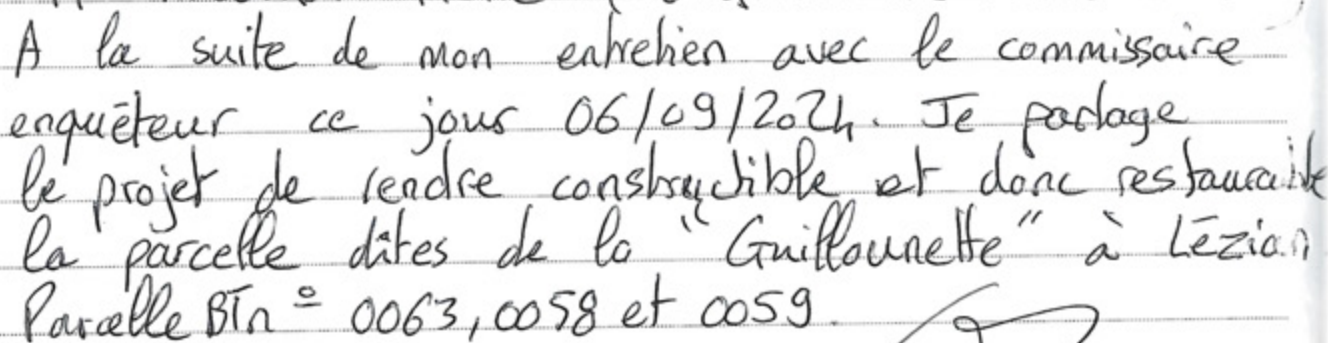 A la suite de mon entretien avec le commissaire
enquêteur ce jour 06/09/2024. Je partage
le projet de rendre constructible et donc restaurable
la parcelle dîtes de la "Guillounette" à Lézian
Parcelle BI n° 0063, 0058 et 0059.